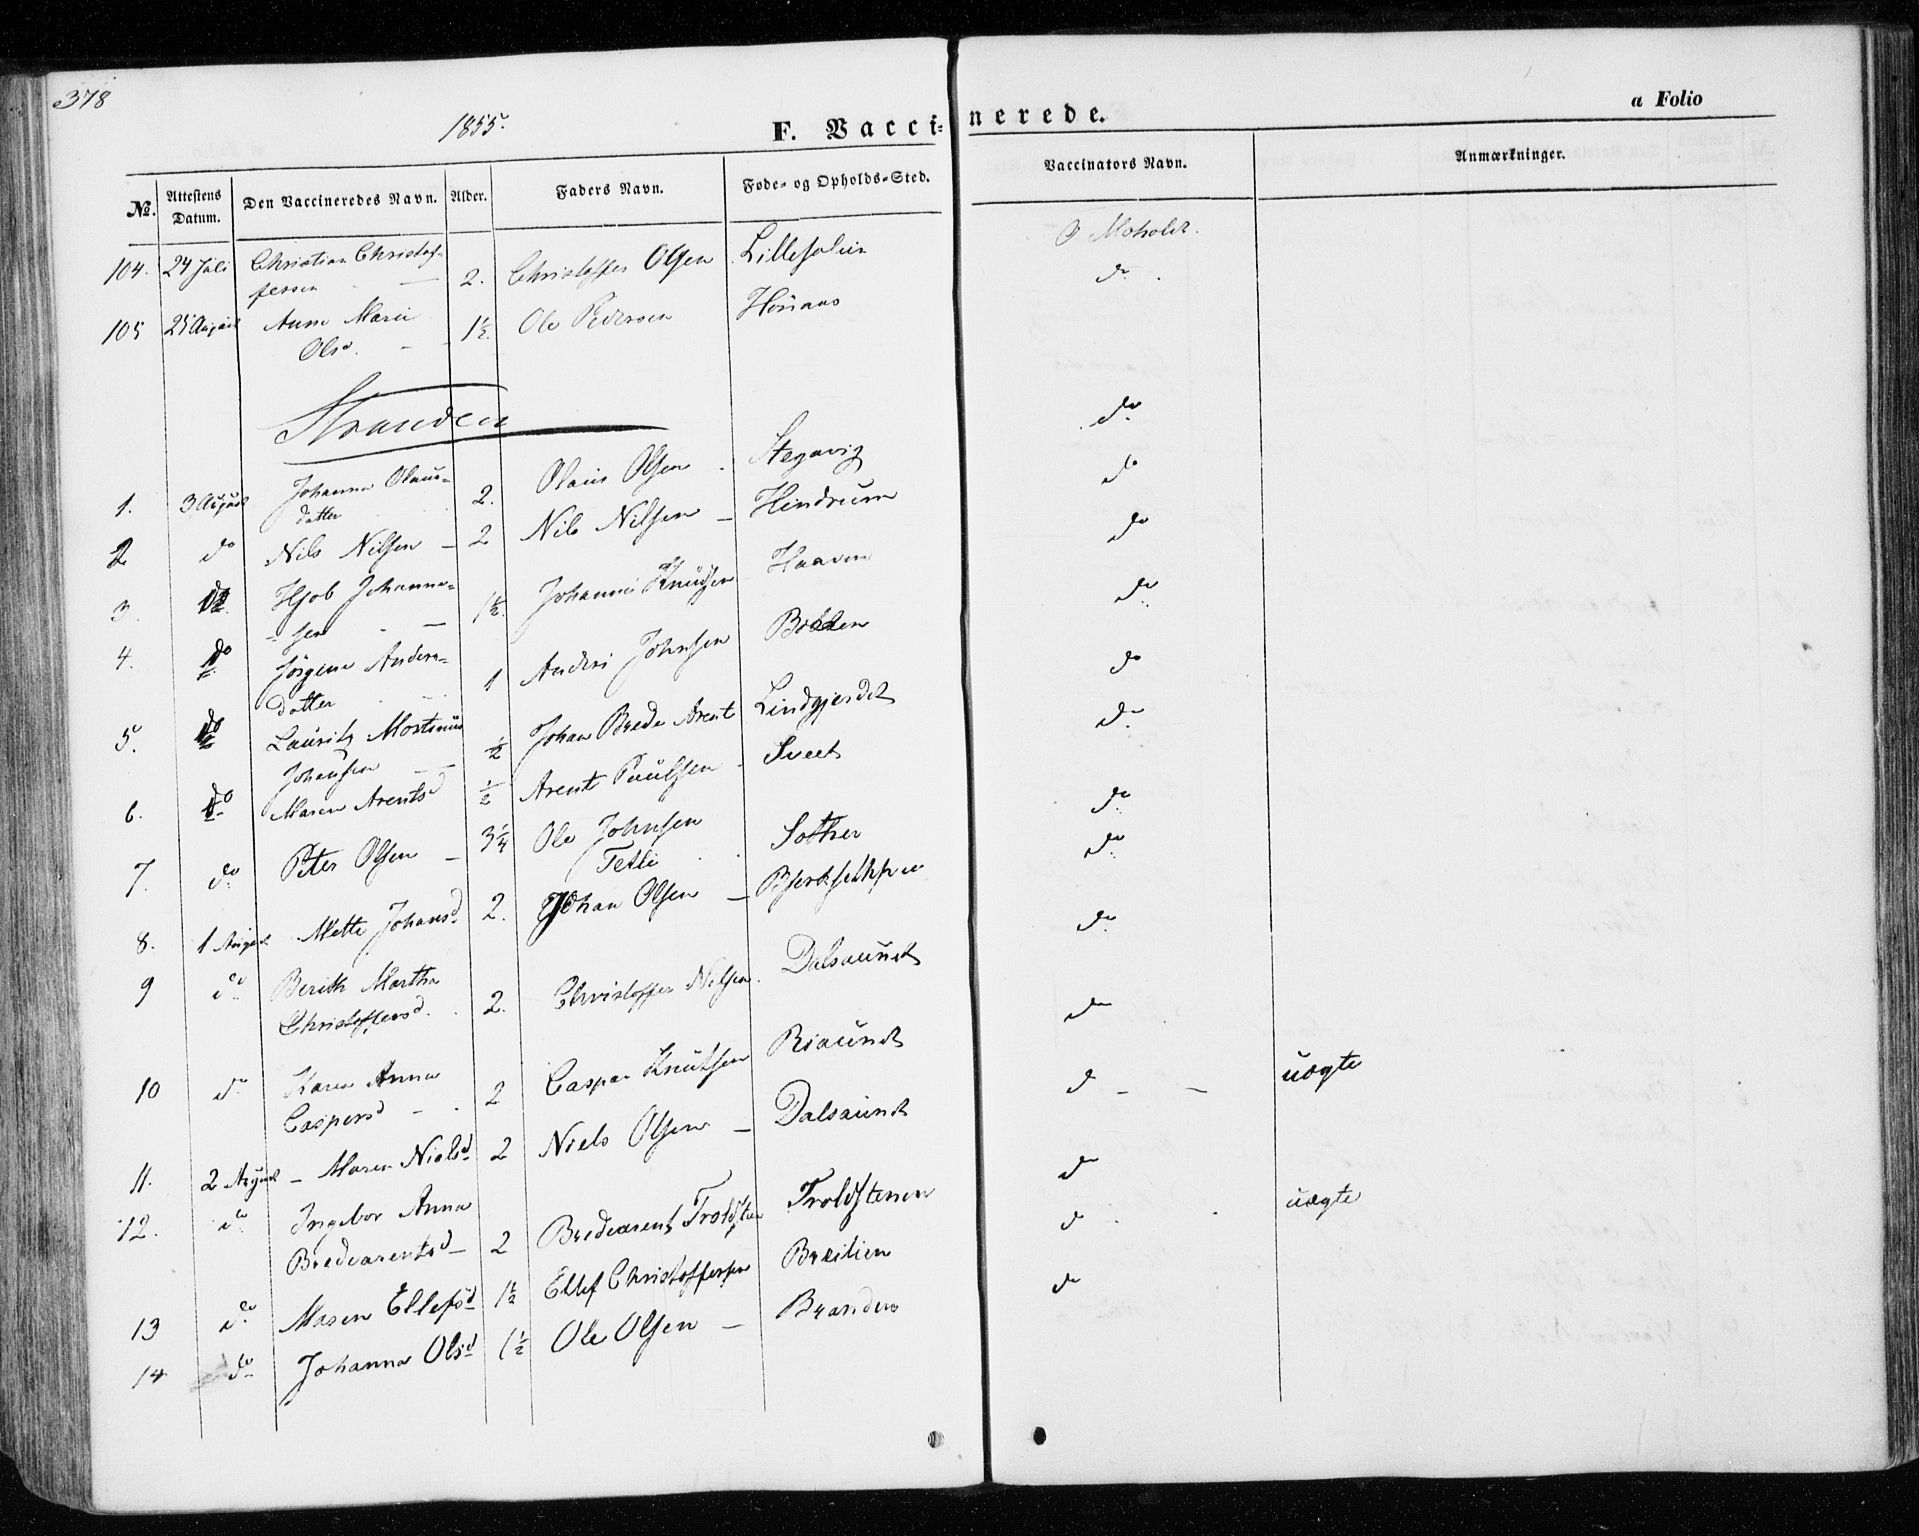 378
1855.
F. Vaccinerede.
a Folio
No. Attestens Datum. Den Vaccineredes Navn. Alder. Faders Navn. Føde- og Opholds-Sted. Vaccinators Navn. Anmærkninger.
104. 24 Juli Christian Christof- 2. Christoffer Olsen Moholdt.
fersen
105 25 August Anne Marie 1½. Ole Pedersen do
Olsd.
Stranden
1. 3 August Johanna Olaus- 2. Olaus Olsen Stegavig do
datter
2 do Nils Nilsen 2 Nils Nilsen Hindrum do
3. do Johanne- 1½. Johannes Knudsen do
sen
4. do Jörgine Anders- 1 Anders Johnsen do
datter
5. do Lauritz Mortinus ½ Johan Brede Arent Lindgjerdet do
Johansen
6. do Maren Arentsd ½ Arent Paulsen Sveet do
7. do Peter Olsen 3¼ Ole Johnsen do
8. 1 August Mette Johansd 2. Johan Olsen do
9 do Berith Martha 2. Christoffer Nilsen. Dalsaunet do
Christoffersd.
10 do Karen Anna 2 Caspar Knutsen Riaunet do
Caspersd
11. 2 August Maren Nielsd 2 Niels Olsen Dalsaunet do uægte
12. do Ingebor Anna 2 Bredearent Troldsten Troldstenen do
Bredearentsd
13 do Maren Ellefsd 1½ Ellef Christoffersen Breilien do uægte
14 do Johanna Olsd 1½ Ole Olsen do